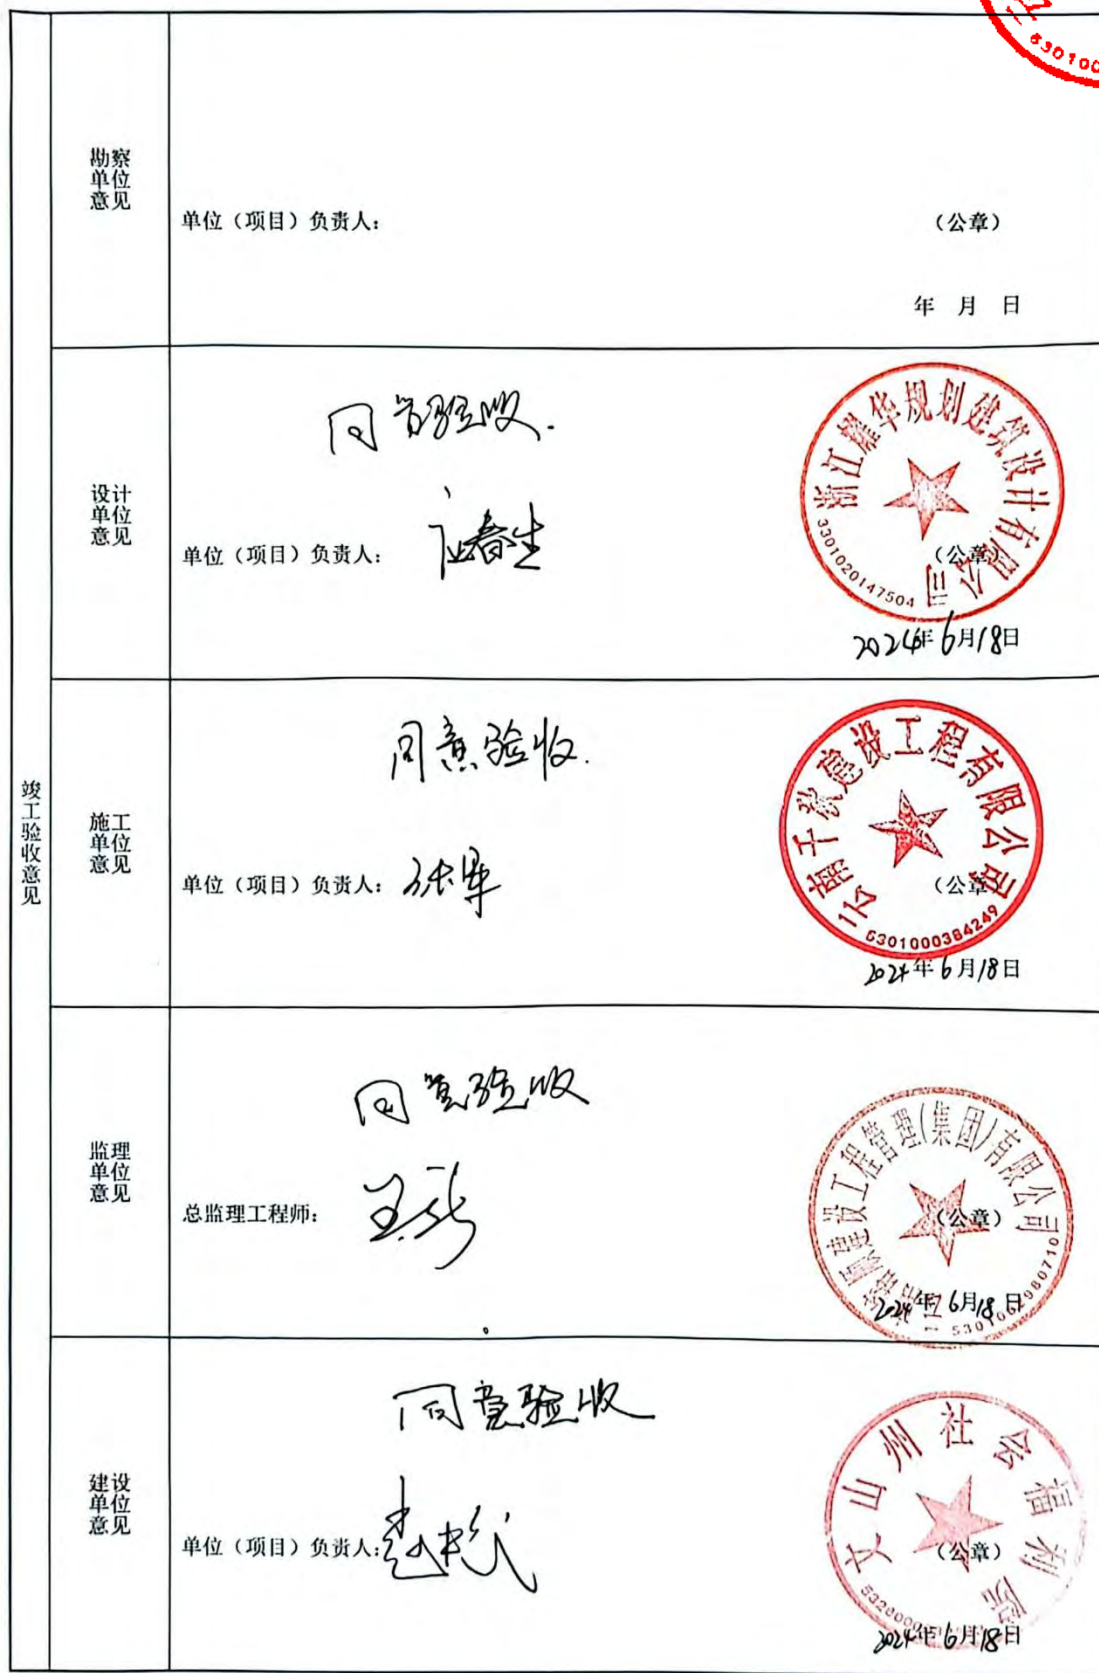 530100
竣工验收意见
勘察
单位
意见
单位（项目）负责人：
（公章）
年 月 日
设计
单位
意见
同意验收.
单位（项目）负责人：
浙江耀华规划建筑设计有限公司
3301020147504
（公章）
2024年6月18日
施工
单位
意见
同意验收.
单位（项目）负责人：
云南千城建设工程有限公司
5301000384249
（公章）
2024年6月18日
监理
单位
意见
同意验收
总监理工程师：
建设工程管理(集团)有限公司
（公章）
2024年6月18日
建设
单位
意见
同意验收
单位（项目）负责人：
文山州社会福利院
（公章）
2024年6月18日